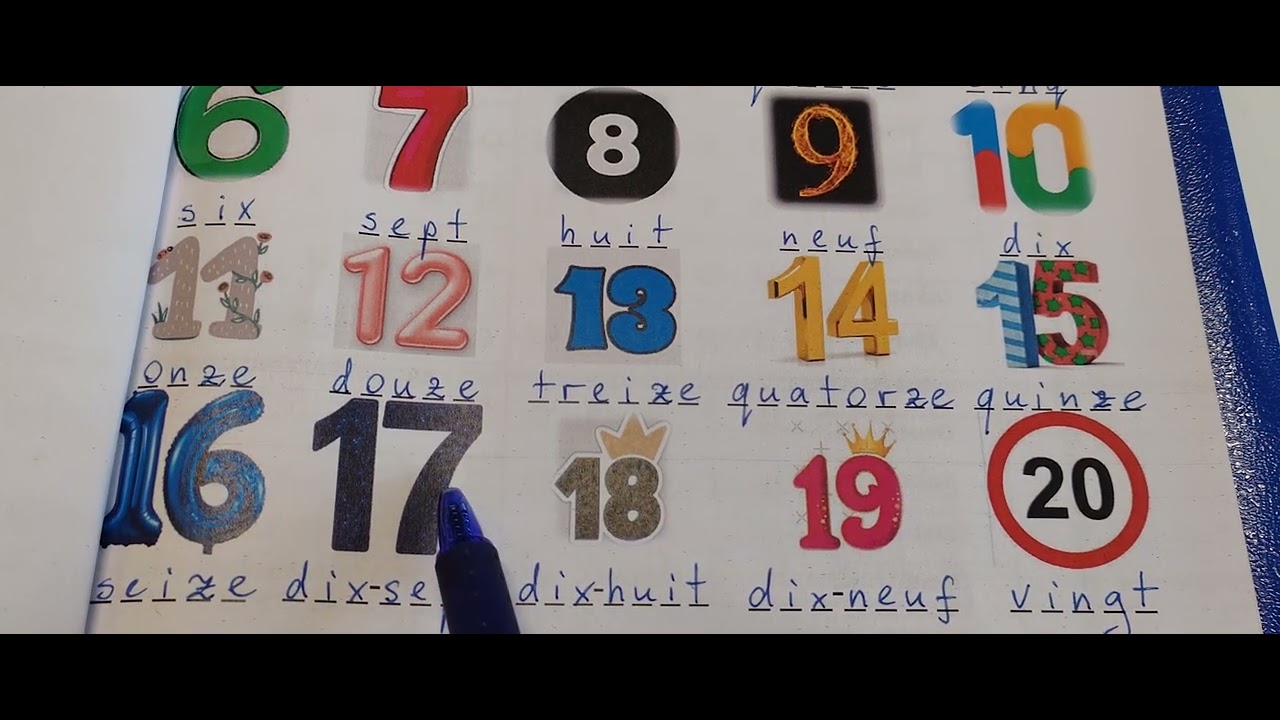 6 7 8 9 10
six sept huit neuf dix
11 12 13 14 15
onze douze treize quatorze quinze
16 17 18 19 20
seize dix-se dix-huit dix-neuf vingt